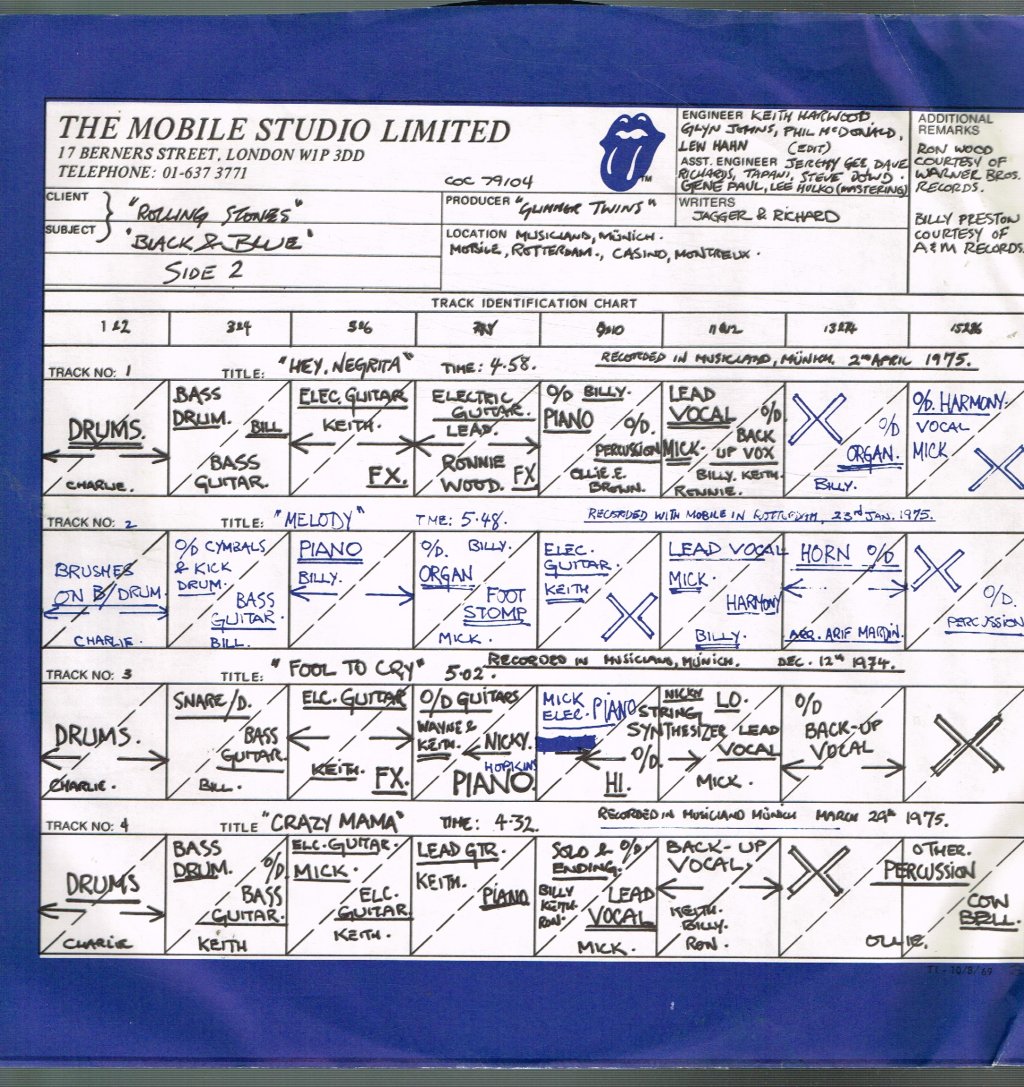 THE MOBILE STUDIO LIMITED
17 BERNERS STREET, LONDON W1P 3DD
TELEPHONE: 01-637 3771
COC 79104
TM
ENGINEER KEITH HARWOOD
GLYN JOHNS, PHIL McDONALD,
LEW HAHN (EDIT)
ASST. ENGINEER JEREMY GEE, DAVE
RICHARDS, TAPANI, STEVE DOWD.
GENE PAUL, LEE HULKO (MASTERING)
ADDITIONAL
REMARKS
RON WOOD
COURTESY OF
WARNER BROS.
RECORDS.
BILLY PRESTON
COURTESY OF
A&M RECORDS.
CLIENT
SUBJECT
"ROLLING STONES"
"BLACK & BLUE"
SIDE 2
PRODUCER "GLIMMER TWINS"
WRITERS
JAGGER & RICHARD
LOCATION MUSICLAND, MÜNICH.
MOBILE, ROTTERDAM., CASINO, MONTREUX.
TRACK IDENTIFICATION CHART
1 & 2 3&4 5&6 7&8 9&10 11&12 13&14 15&16
TRACK NO: 1 TITLE: "HEY, NEGRITA" TIME: 4.58. RECORDED IN MUSICLAND, MÜNICH. 2nd APRIL 1975.
DRUMS.
CHARLIE.
BASS
DRUM.
BILL
BASS
GUITAR.
ELEC. GUITAR
KEITH.
FX.
ELECTRIC
GUITAR.
LEAD.
RONNIE
WOOD. FX
O/D BILLY.
PIANO
O/D.
PERCUSSION
OLLIE.E.
BROWN.
LEAD
VOCAL
MICK.
O/D
BACK
UP VOX
BILLY. KEITH.
RONNIE.
O/D
ORGAN.
BILLY.
O/D. HARMONY.
VOCAL
MICK
TRACK NO: 2 TITLE: "MELODY" TIME: 5.48. RECORDED WITH MOBILE IN ROTTERDAM, 23rd JAN. 1975.
BRUSHES
ON B/DRUM
CHARLIE.
O/D CYMBALS
& KICK
DRUM.
BASS
GUITAR.
BILL.
PIANO
BILLY.
O/D. BILLY.
ORGAN
FOOT
STOMP
MICK.
ELEC.
GUITAR.
KEITH
LEAD VOCAL
MICK.
HARMONY
BILLY.
HORN O/D
ARR. ARIF MARDIN.
O/D.
PERCUSSION
TRACK NO: 3 TITLE: "FOOL TO CRY" 5.02. RECORDED IN MUSICLAND, MÜNICH. DEC. 12th 1974.
DRUMS.
CHARLIE.
SNARE/D.
BASS
GUITAR.
BILL.
ELC. GUITAR
KEITH. FX.
O/D GUITARS
WAYNE &
KEITH.
NICKY.
HOPKINS
PIANO.
MICK
ELEC. PIANO
NICKY
STRING
SYNTHESIZER
O/D.
HI.
LO.
LEAD
VOCAL
MICK.
O/D
BACK-UP
VOCAL
TRACK NO: 4 TITLE "CRAZY MAMA" TIME: 4.32. RECORDED IN MUSICLAND MÜNICH MARCH 29th 1975.
DRUMS
CHARLIE
BASS
DRUM.
O/D
BASS
GUITAR.
KEITH
ELC. GUITAR.
MICK.
ELC.
GUITAR.
KEITH.
LEAD GTR.
KEITH.
PIANO
SOLO & O/D
ENDING.
BILLY
KEITH.
RON.
LEAD
VOCAL
MICK.
BACK-UP
VOCAL.
KEITH.
BILLY.
RON.
OTHER.
PERCUSSION
COW
BELL.
OLLIE.
T1 - 10/8/69